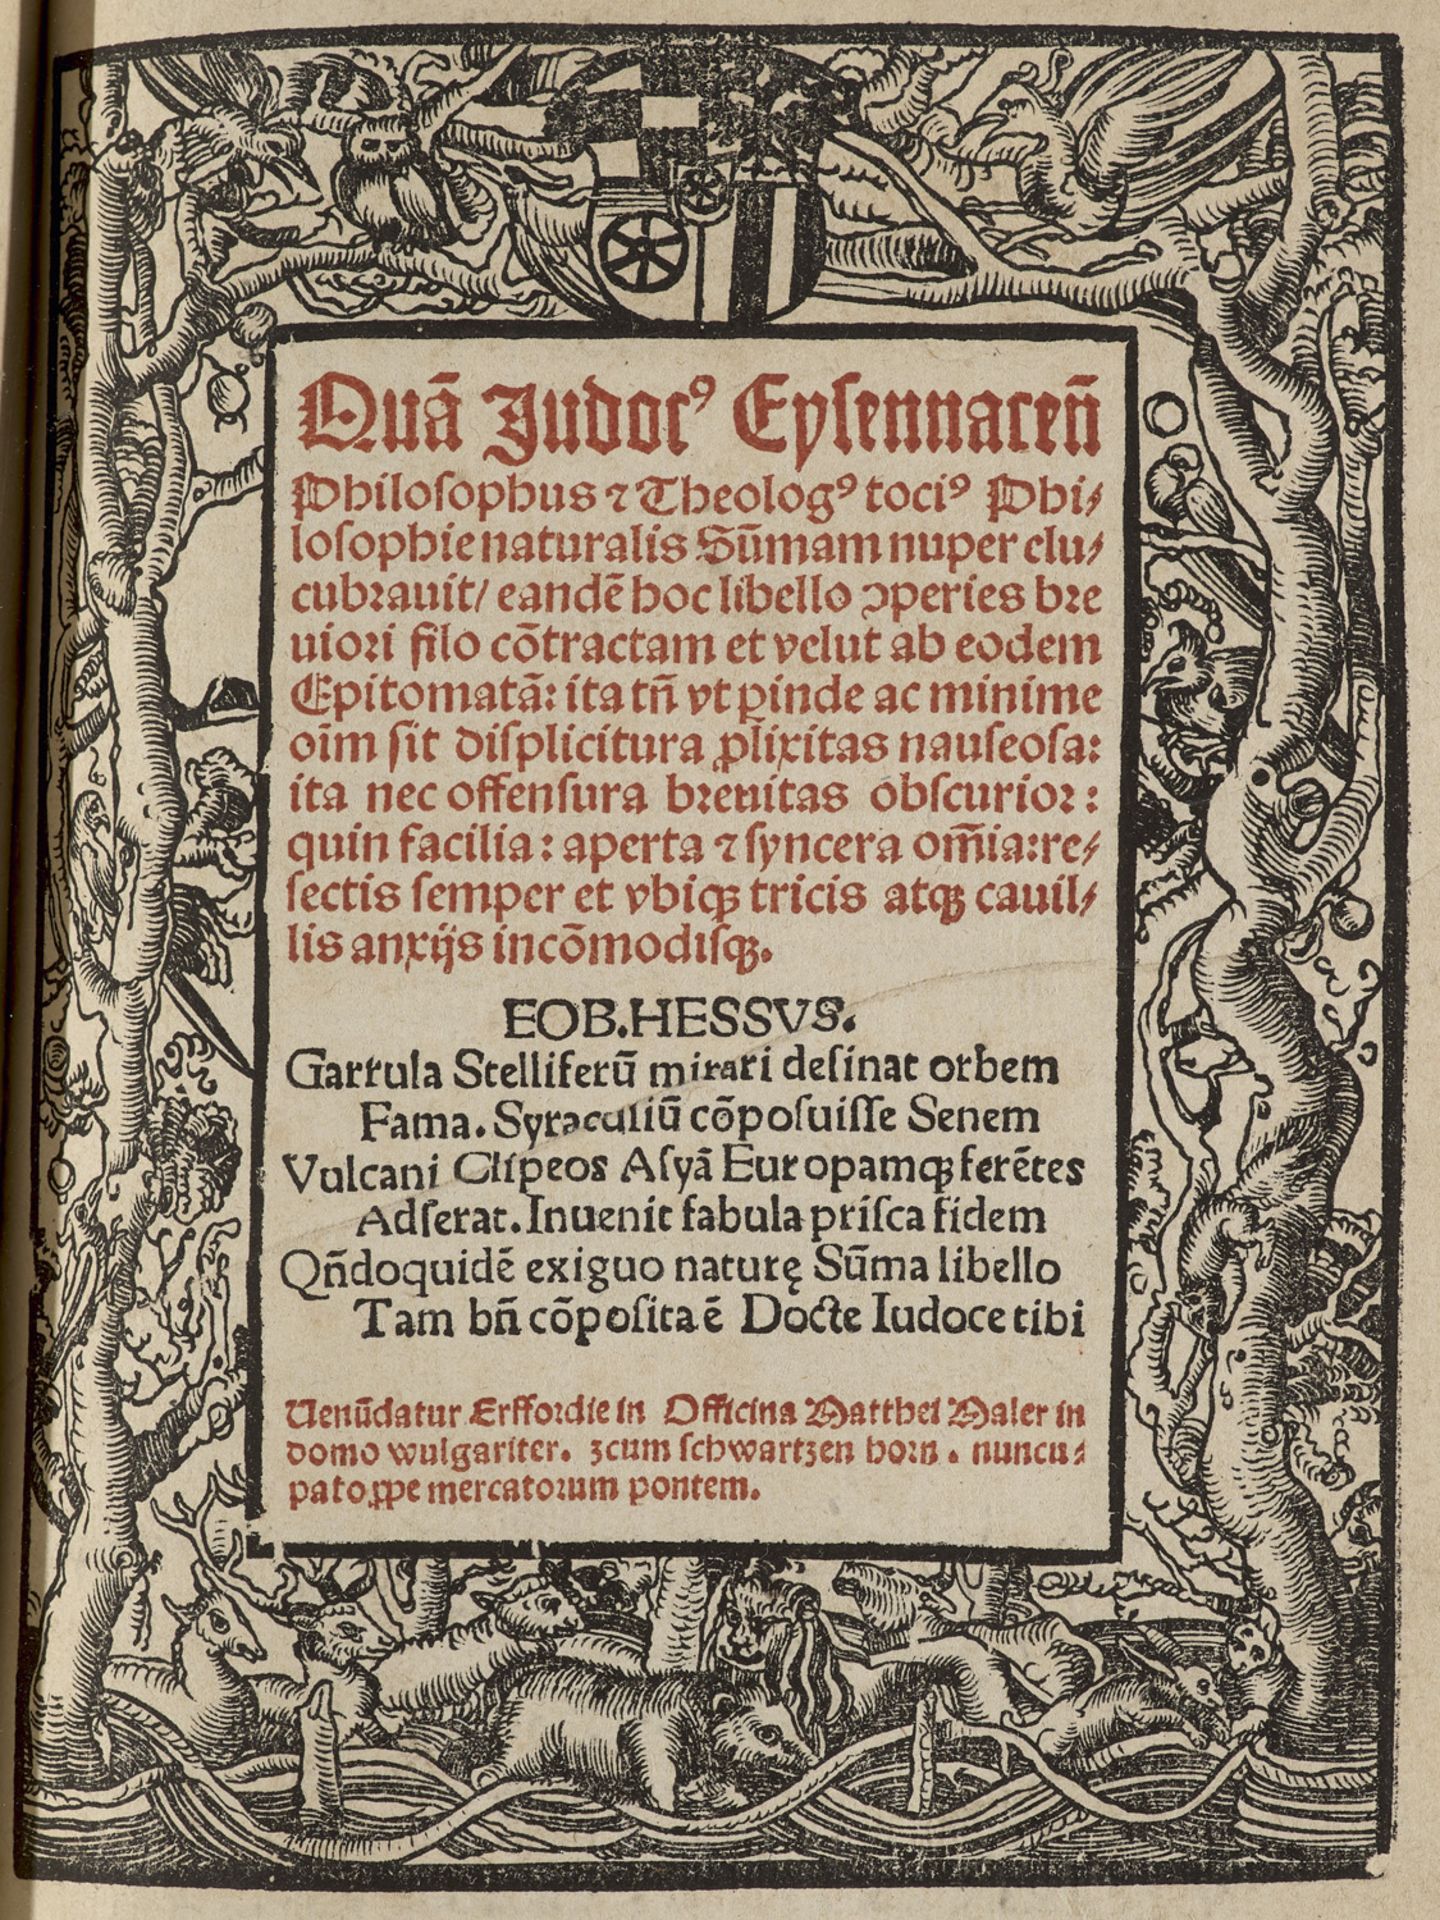 Quā Judocꝰ Eyſennaceñ
Philoſophus ⁊ Theologꝰ tociꝰ Phi⸗
loſophie naturalis Sūmam nuper elu⸗
cubꝛauit/ eandē hoc libello ↄperies bꝛe
uioꝛi filo cōtractam et velut ab eodem
Epitomatā: ita tn̄ vt ꝓinde ac minime
oīm ſit diſplicitura ꝓlixitas nauſeoſa:
ita nec offenſura bꝛeuitas obſcurioꝛ:
quin facilia: aperta ⁊ ſyncera om̄ia: re⸗
ſectis ſemper et vbiqꝫ tricis atqꝫ cauil⸗
lis anxijs incōmodiſqꝫ.
EOB. HESSVS.
Garrula Stelliferū mirari deſinat orbem
Fama. Syracuſiū cōpoſuiſſe Senem
Vulcani Clipeos Aſyā Europamqꝫ ferētes
Adſerat. Inuenit fabula priſca fidem
Qn̄doquidē exiguo naturę Sūma libello
Tam bn̄ cōpoſita ē Docte Iudoce tibi
Uenūdatur Erffoꝛdie in Officina Matthei Maler in
domo wulgariter. zcum ſchwartzen hoꝛn. nuncu⸗
pato ꝓpe mercatoꝛum pontem.